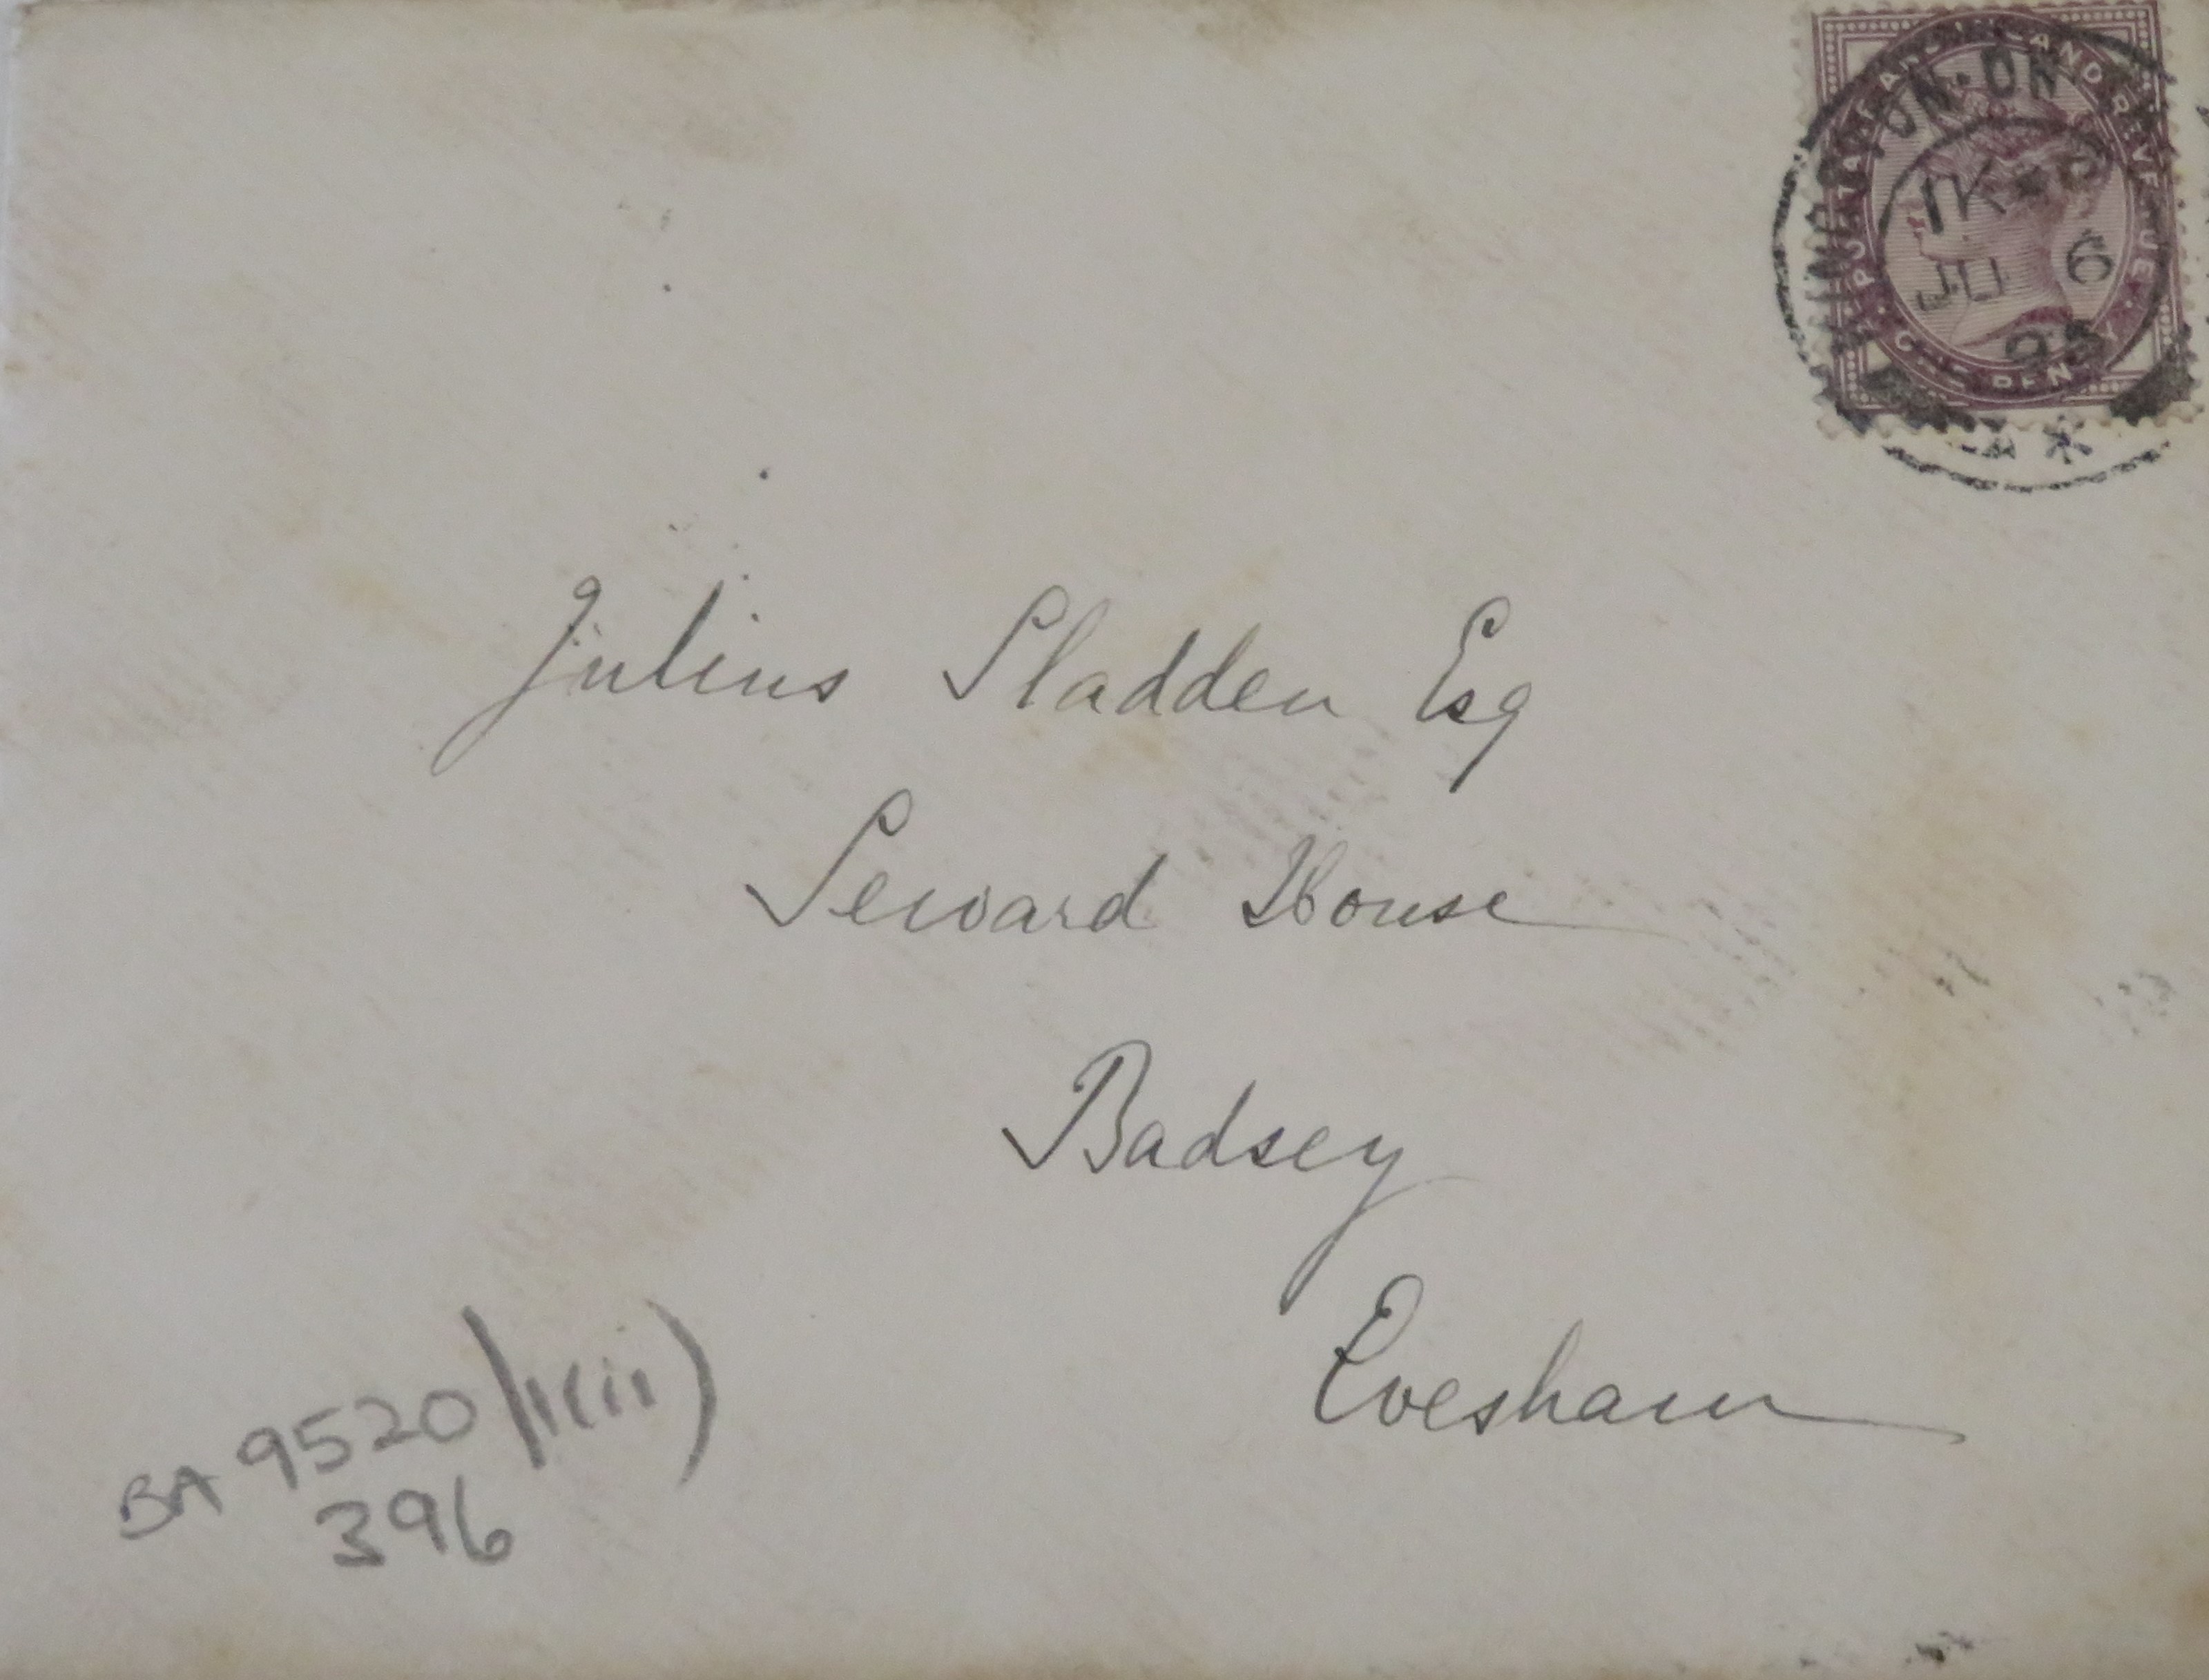 POSTAGE AND REVENUE
ONE PENNY
JU 6
95
Julius Sladden Esq
Seward House
Badsey
Evesham
BA 9520
396